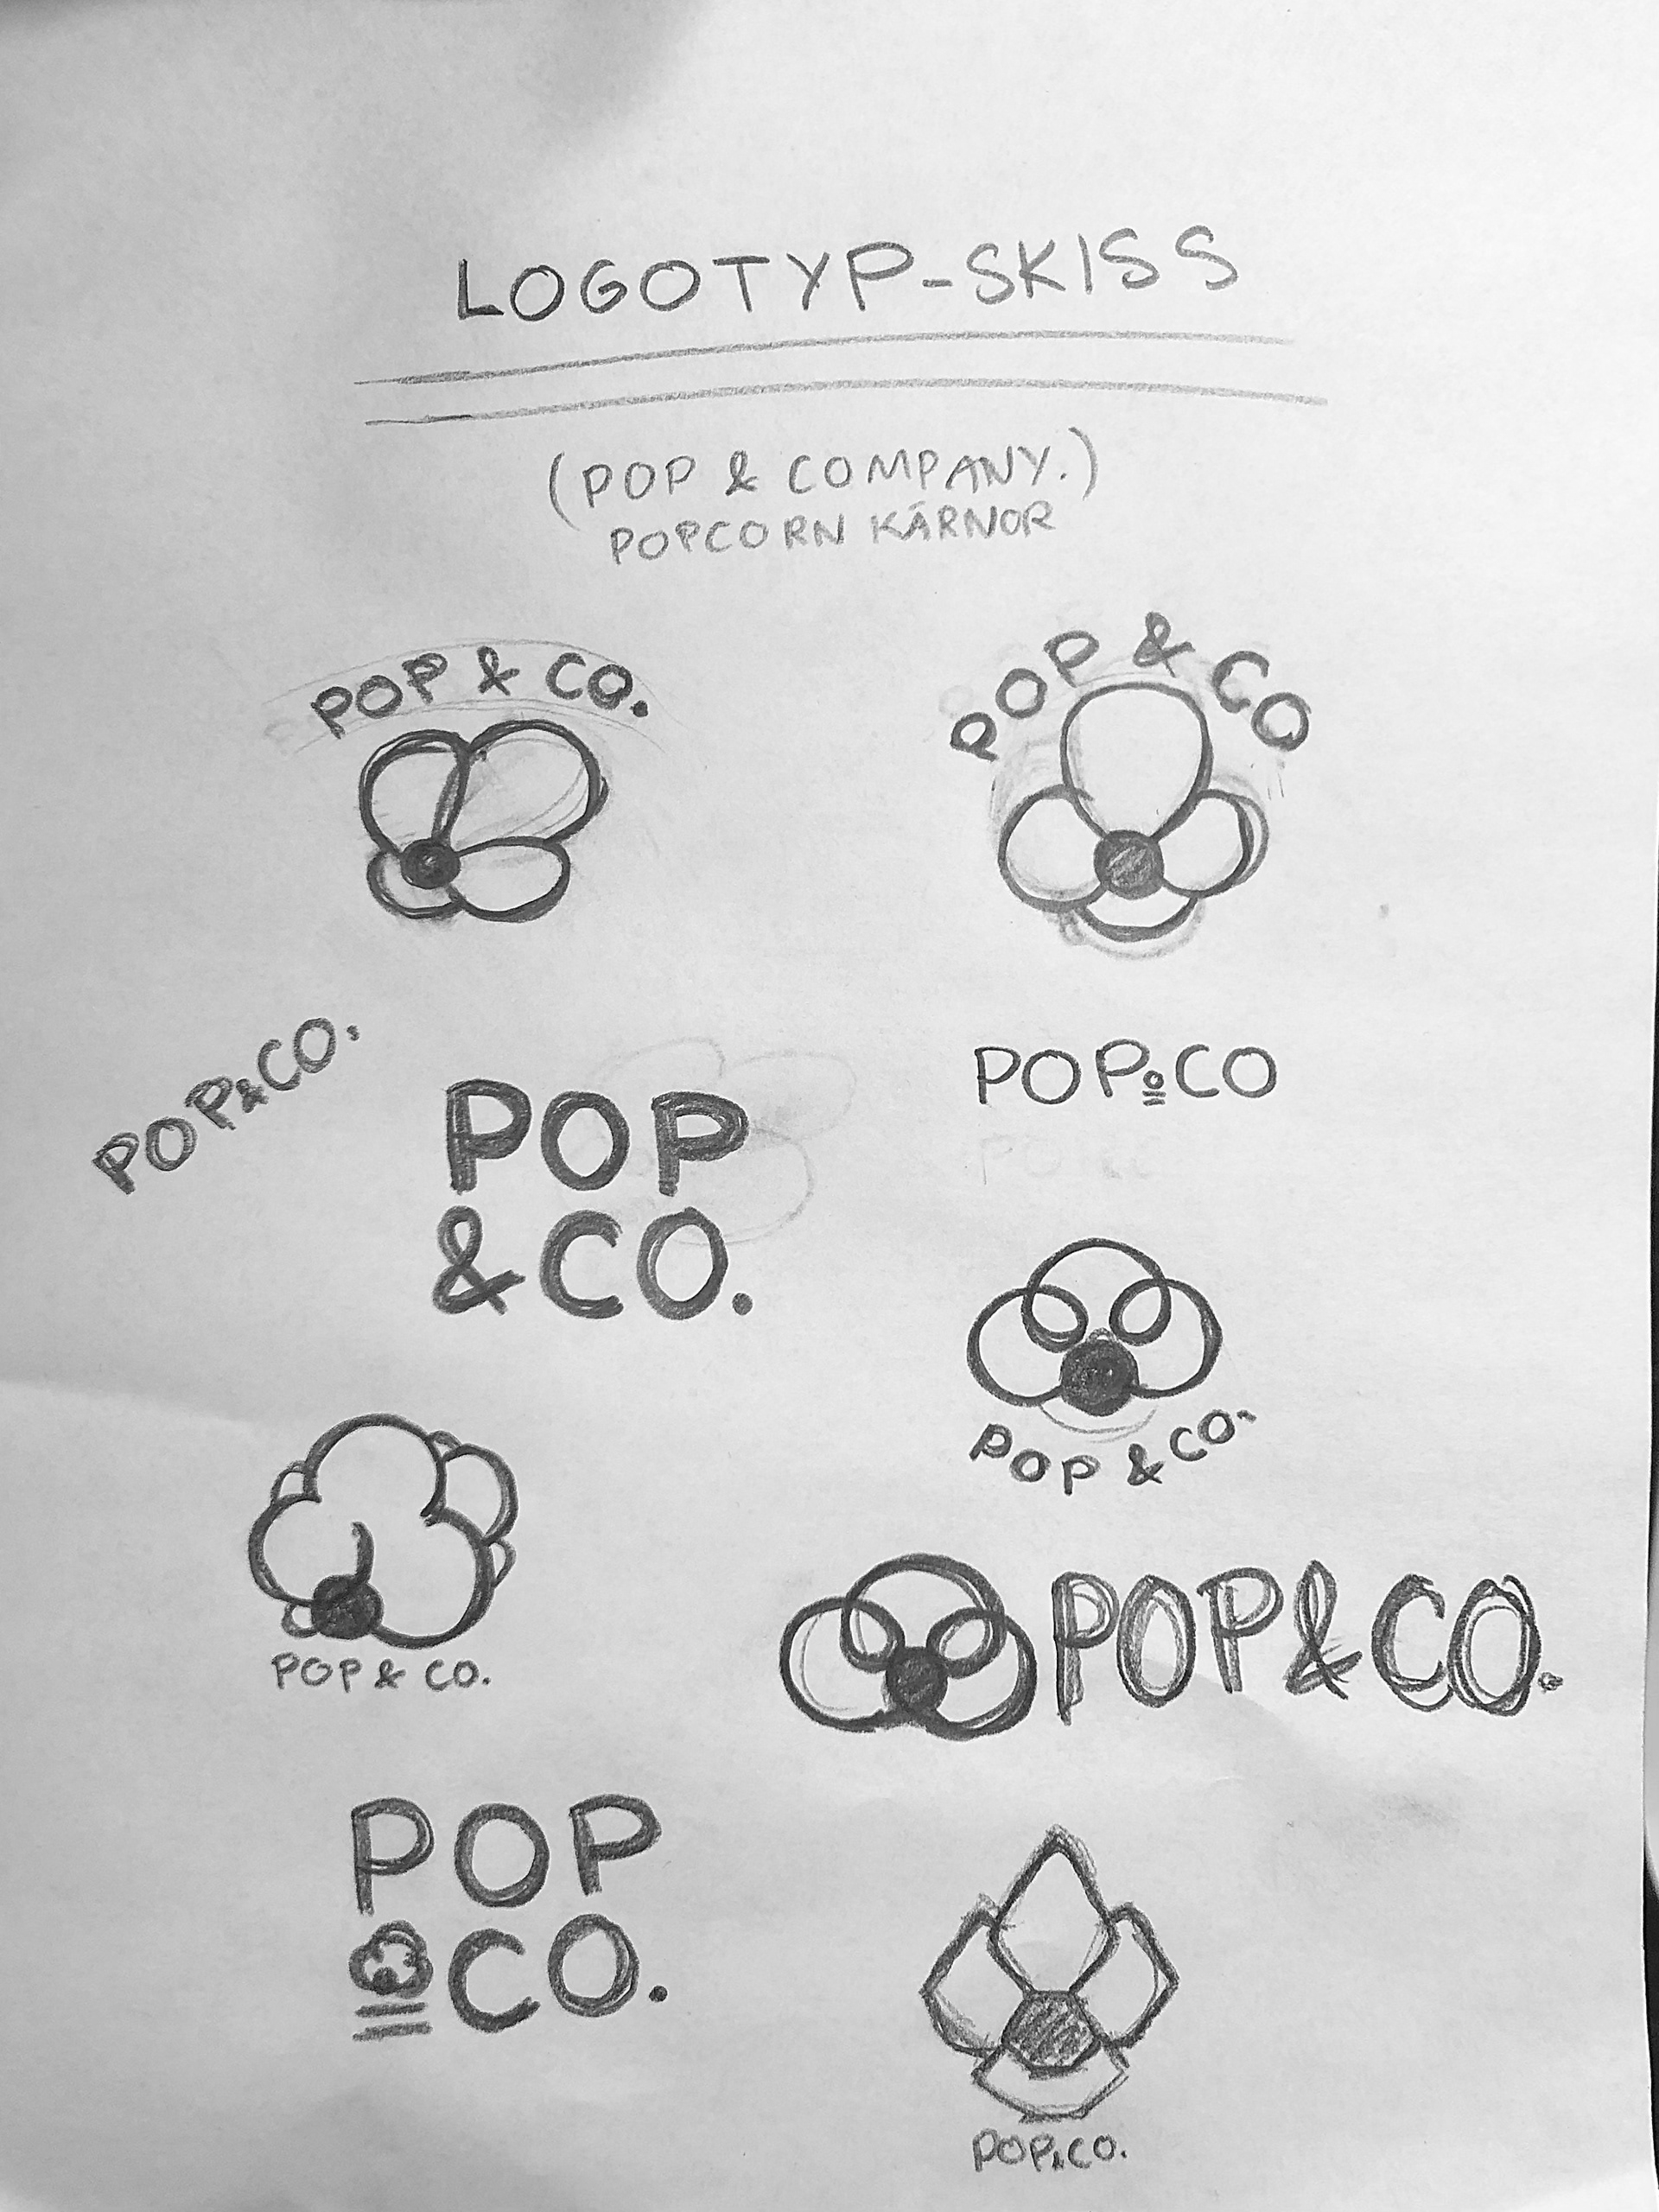 LOGOTYP-SKISS
(POP & COMPANY.)
POPCORN KÄRNOR
POP & CO.
POP & CO
POP&CO.
POP
&CO.
POPCO
POP & CO.
POP & CO.
POP&CO.
POP
CO.
POP&CO.